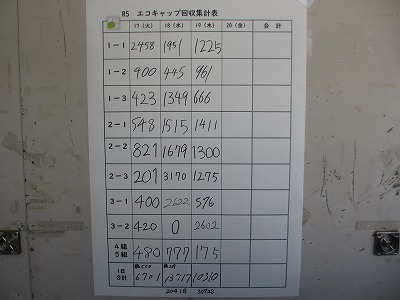 R5 エコキャップ回収集計表
17(火) 18(水) 19(木) 20(金) 合計
1-1 2458 1951 1225
1-2 900 445 961
1-3 423 1349 666
2-1 548 1515 1411
2-2 821 1679 1300
2-3 201 3170 1275
3-1 400 2622 576
3-2 420 0 2602
4組 5組 480 777 175
1日合計 6701 13717 10310
20418 30728